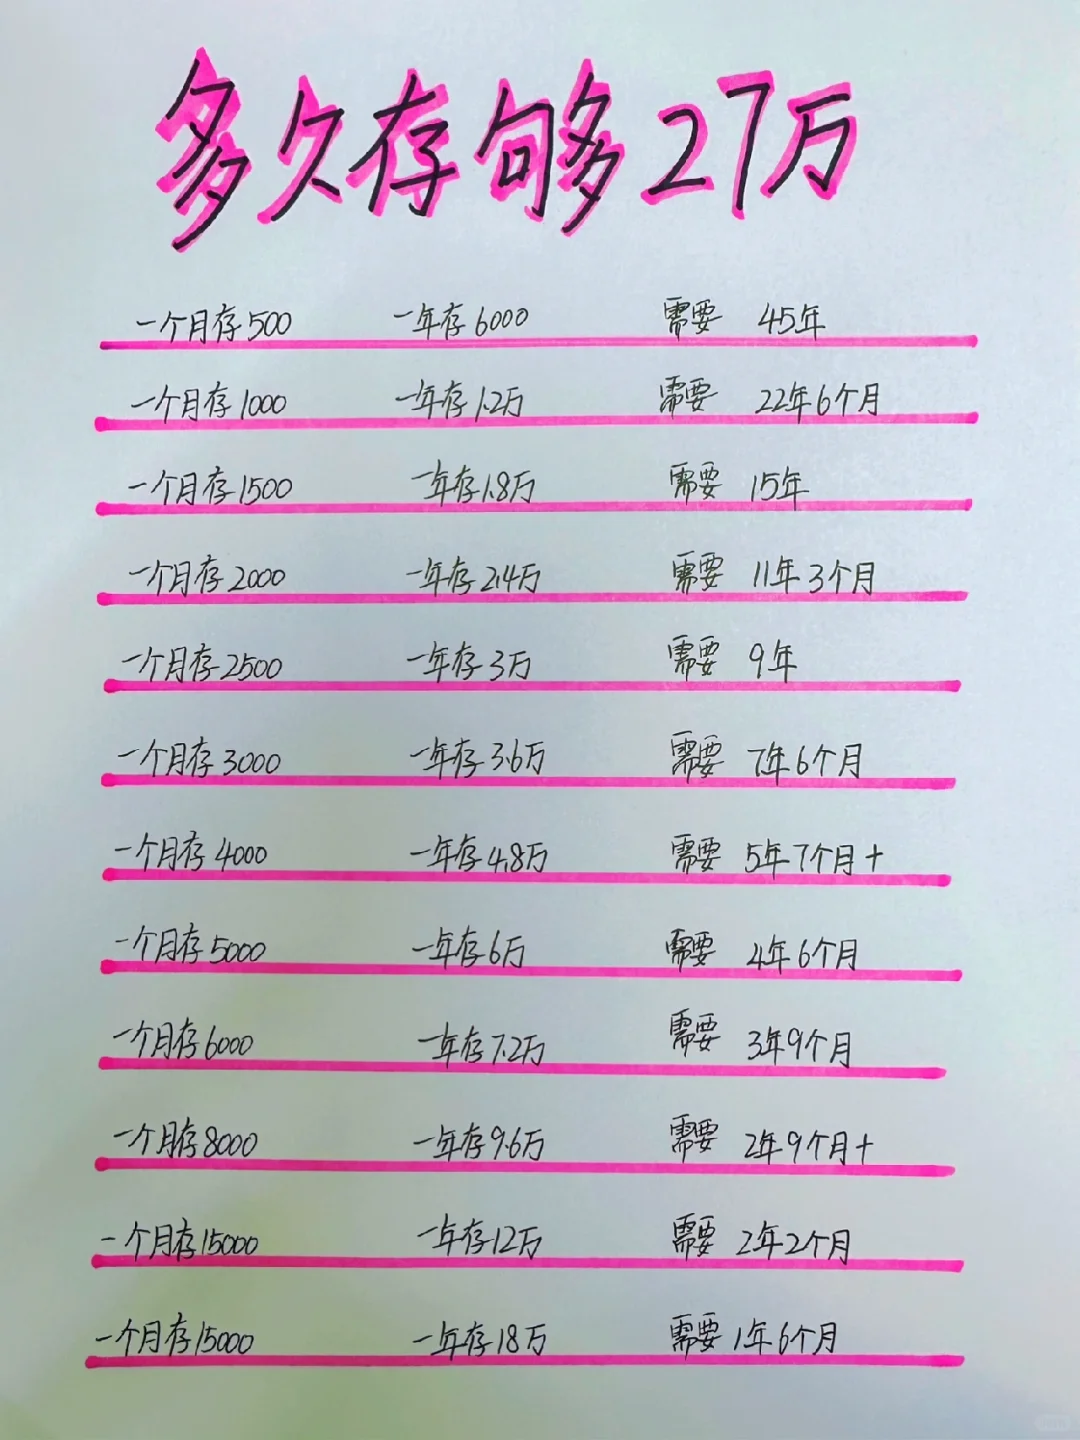 多久存够27万
一个月存500 一年存6000 需要 45年
一个月存1000 一年存1.2万 需要 22年6个月
一个月存1500 一年存1.8万 需要 15年
一个月存2000 一年存2.4万 需要 11年3个月
一个月存2500 一年存3万 需要 9年
一个月存3000 一年存3.6万 需要 7年6个月
一个月存4000 一年存4.8万 需要 5年7个月+
一个月存5000 一年存6万 需要 4年6个月
一个月存6000 一年存7.2万 需要 3年9个月
一个月存8000 一年存9.6万 需要 2年9个月+
一个月存15000 一年存12万 需要 2年2个月
一个月存15000 一年存18万 需要 1年6个月